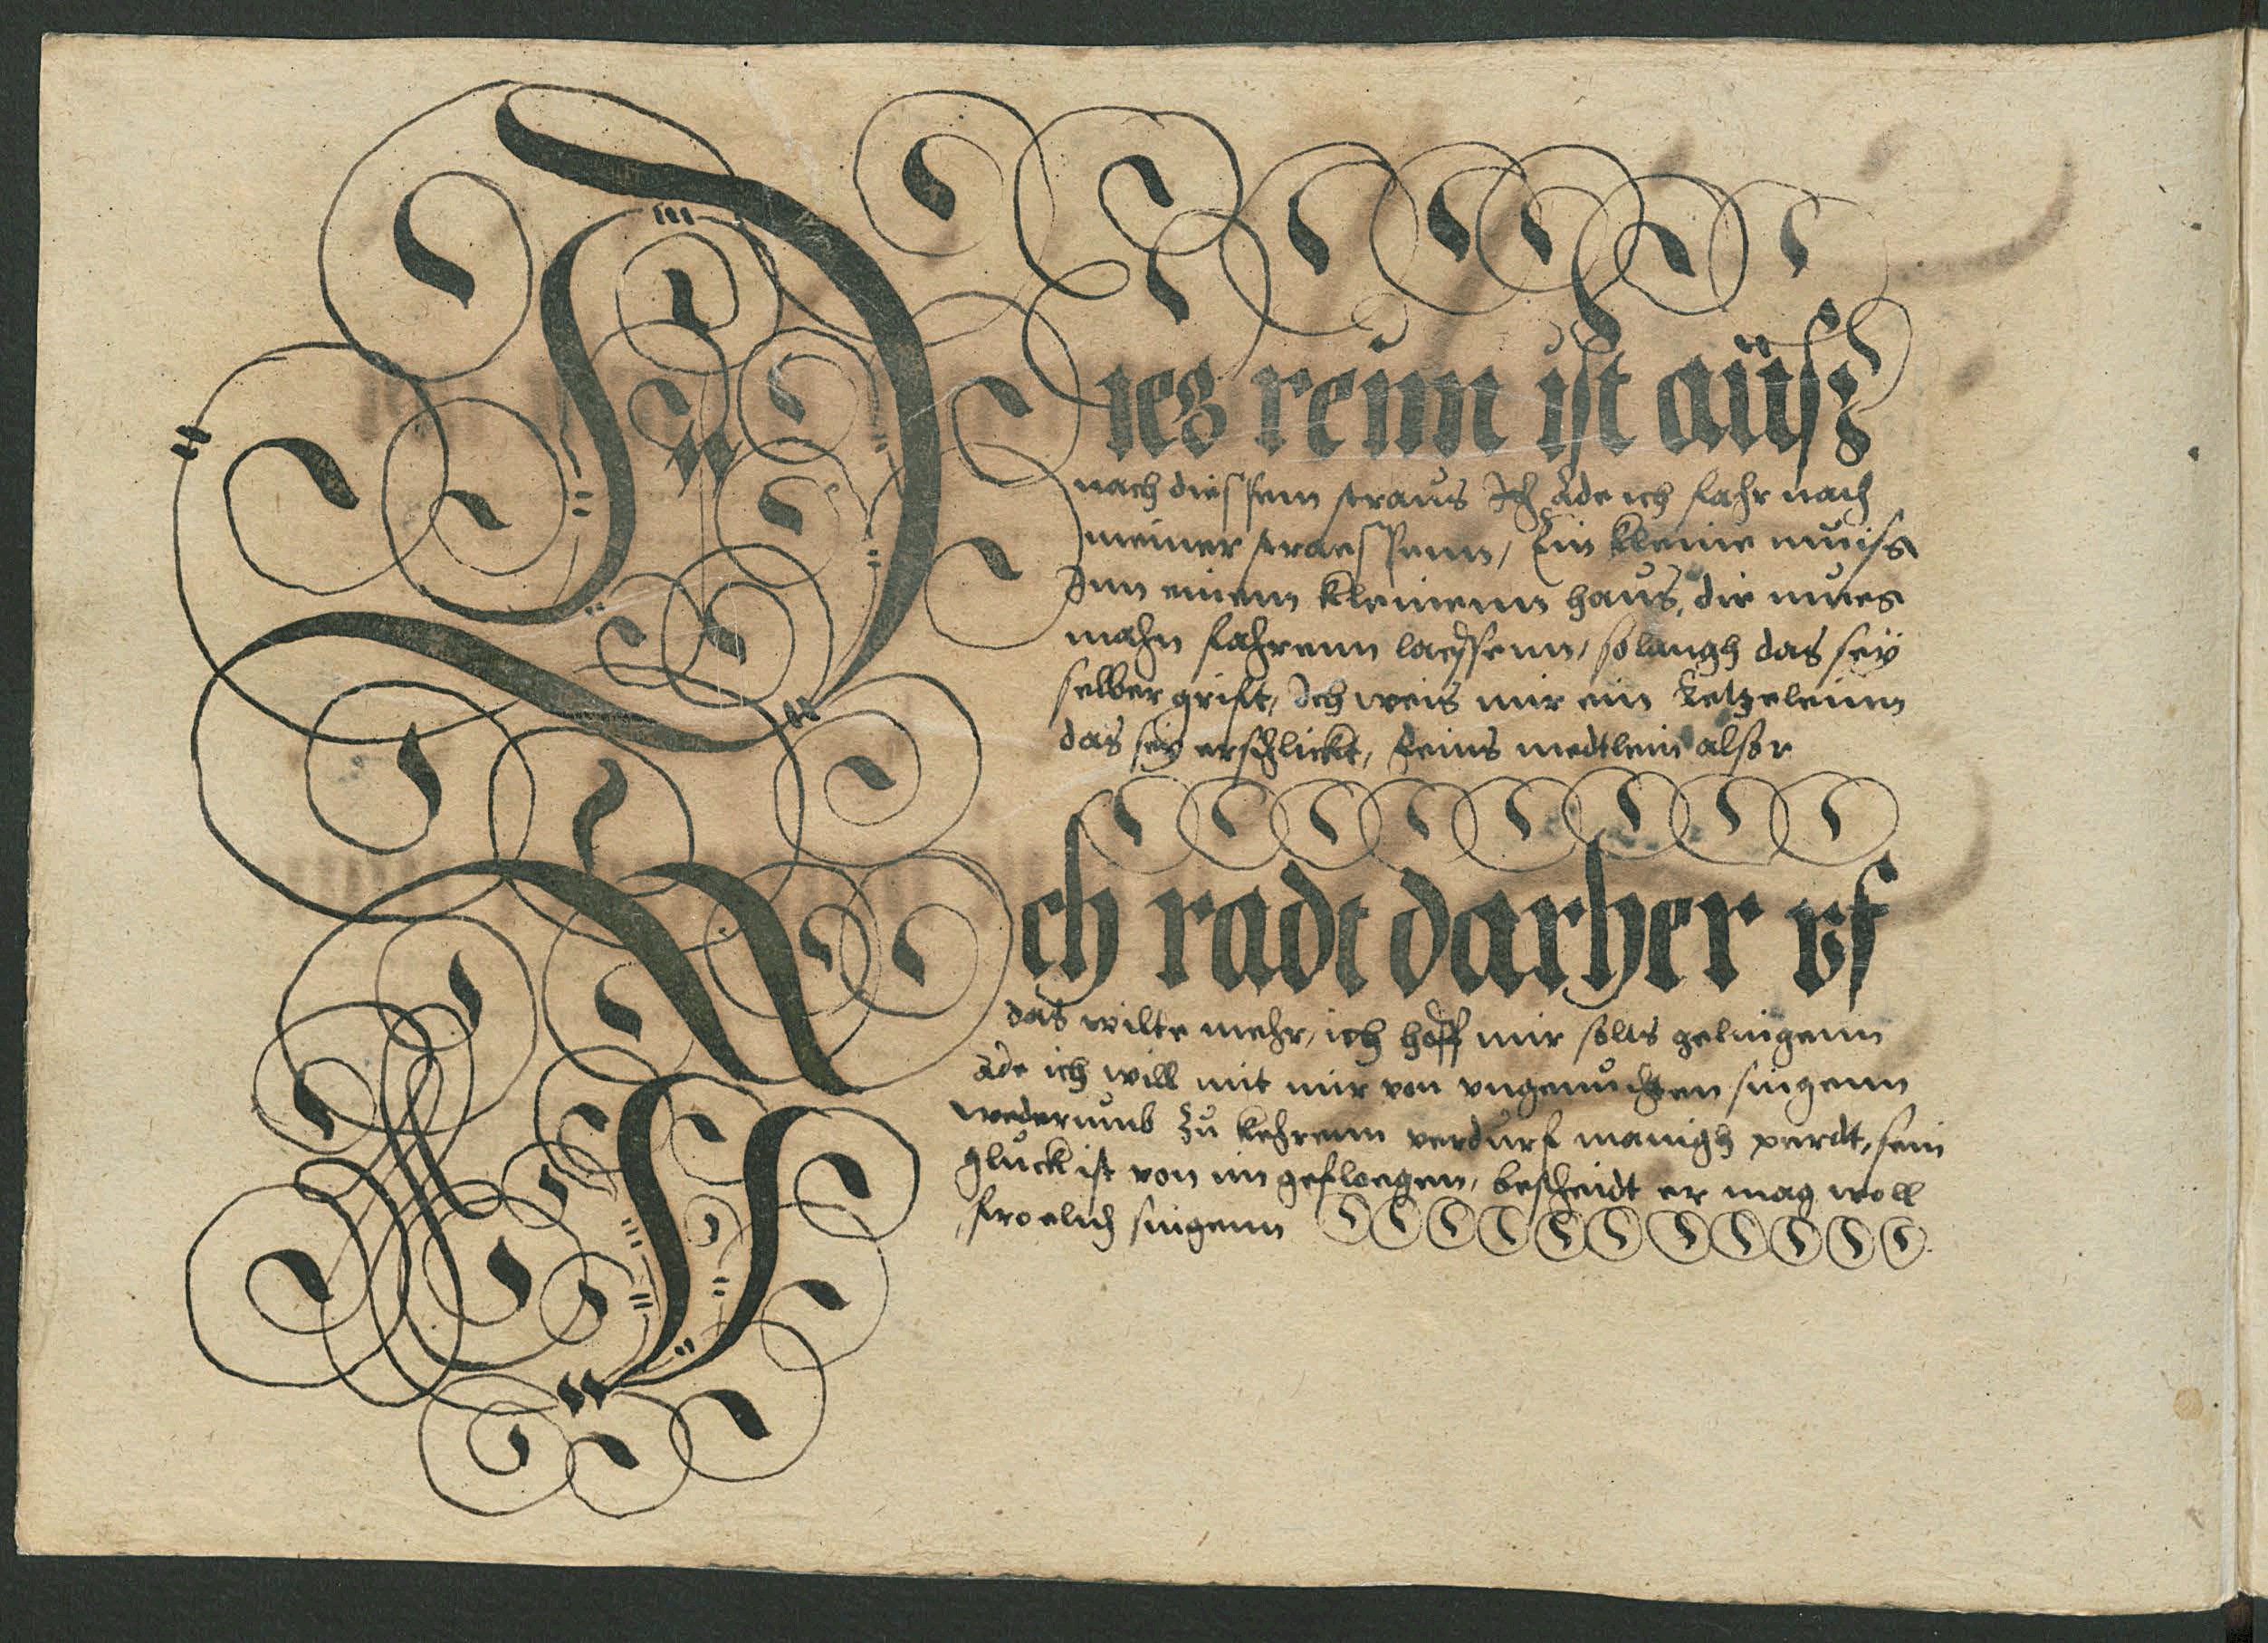 Dies reim ist aüsz
nach diessem straus Ich ade ich fahr nach
meiner straessenn, Ein kleine muiss
Inn einem kleinenn haus, die mues
mahn fahrenn laessenn, so langh das seÿ
selber grift, Ich weis mir ein ketzeleinn
das seÿ erschlickt, feins medtlein alsor
Ich radt darher vf
das wilte mehr, ich hoff mir solts gelingenn
ade ich will mit mir von singenn
wederumb zu kehrenn verdurf manigh perdt, sein
gluck ist von im gefloegen, bescheidt er mag woll
froelich singenn